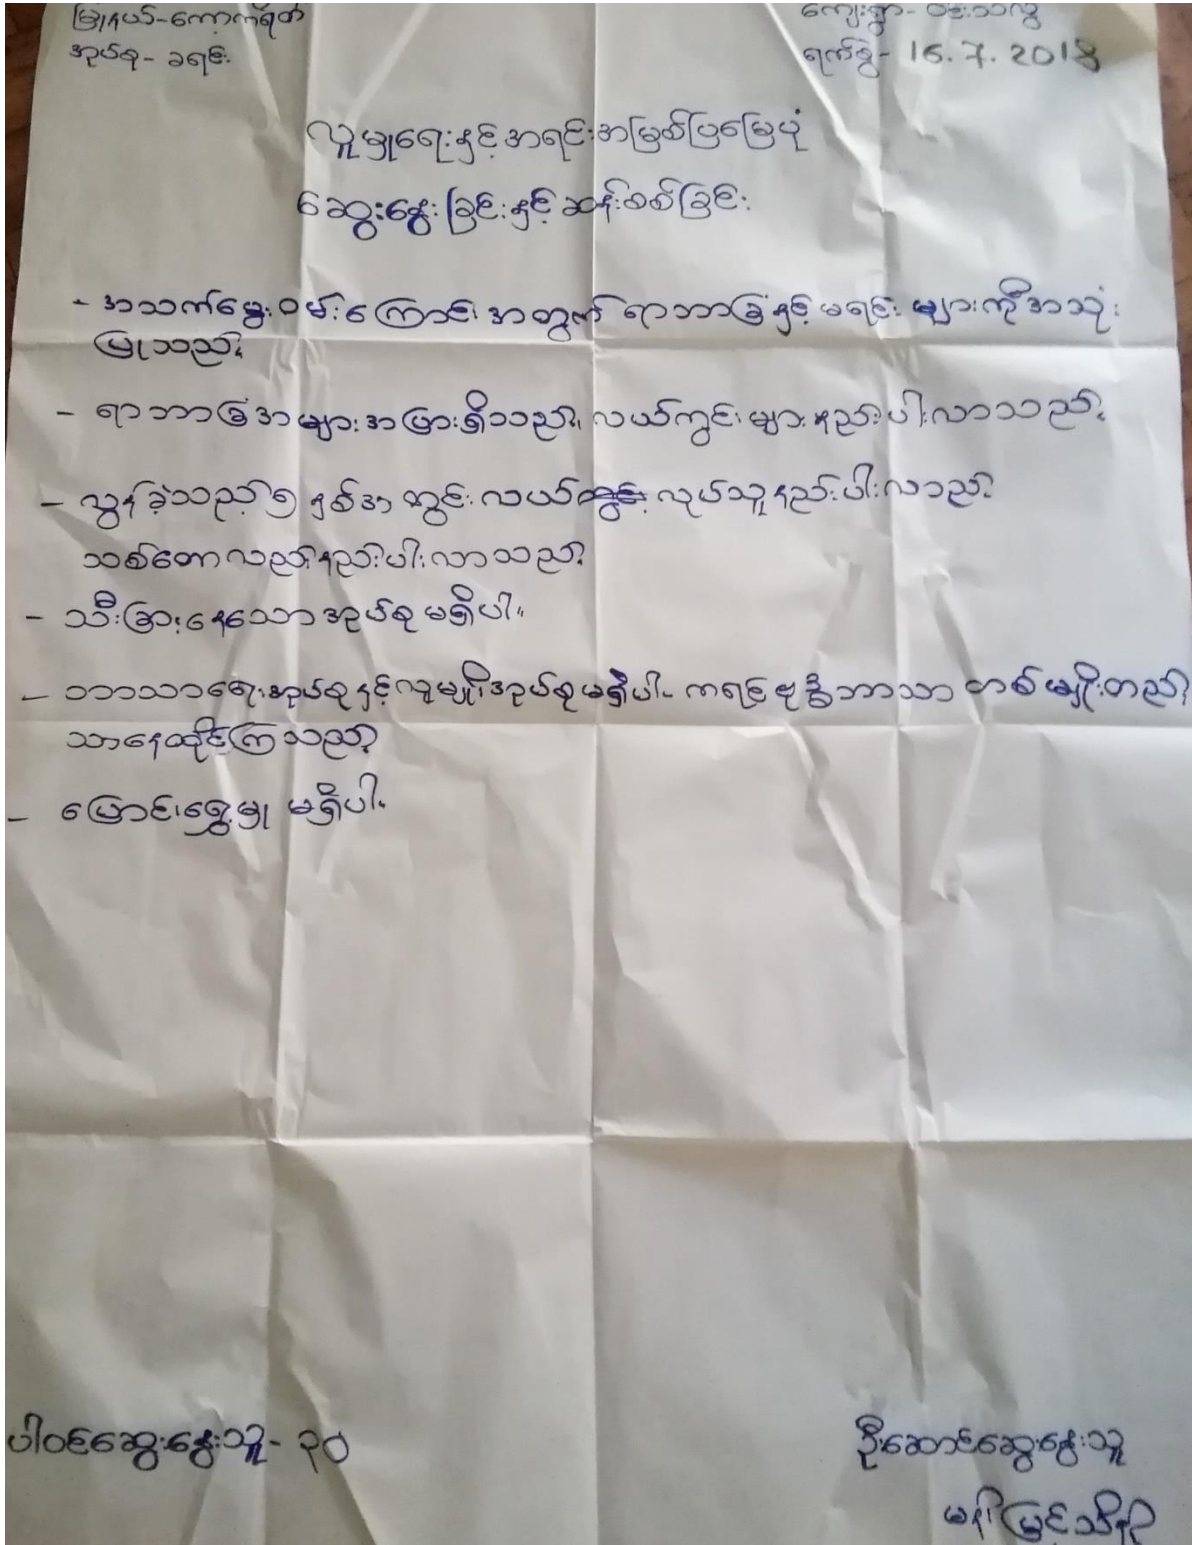 မြို့နယ်-ကော့ကရိတ် ကျေးရွာ-
အုပ်စု-ခရင်း ရက်စွဲ- 16.7.2018
လူမှုရေးနှင့်အရင်းအမြစ်ပြမြေပုံ
ဆွေးနွေးခြင်းနှင့်ဆန်းစစ်ခြင်း
- အသက်မွေးဝမ်းကြောင်း အတွက် ရာဘာခြံနှင့် မရင်း များကိုအသုံး
ပြုသည်။
- ရာဘာခြံအများအပြားရှိသည်။ လယ်ကွင်းများနည်းပါးလာသည်။
- လွန်ခဲ့သည့် ၅ နှစ်အတွင်း လယ် လုပ်သူနည်းပါးလာည်။
သစ်တောလည်းနည်းပါးလာသည်။
- သီးခြားနေသောအုပ်စုမရှိပါ။
- ဘာသာရေးအုပ်စုနှင့်လူမျိုးအုပ်စုမရှိပါ။ ကရင်ဗုဒ္ဓဘာသာ တစ်မျိုးတည်း
သာနေထိုင်ကြသည်။
- ပြောင်းရွှေ့မှု မရှိပါ။
ပါဝင်ဆွေးနွေးသူ- ၃၀ ဦးဆောင်ဆွေးနွေးသူ